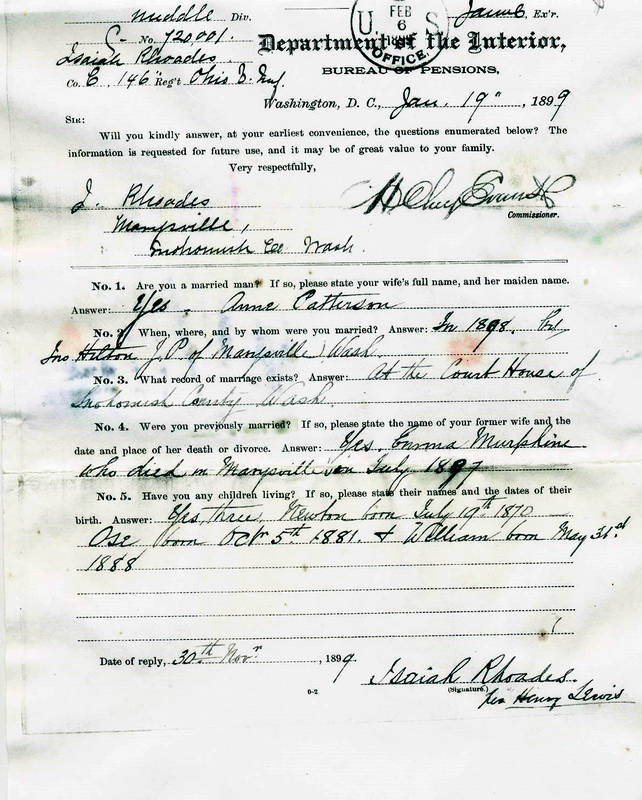 Middle Div.
FEB
6
U S
OFFICE.
Ex'r.
C- No. 720,001.
Isaiah Rhoades
Co. E, 146" Reg't Ohio V. Inf.
Department of the Interior,
BUREAU OF PENSIONS,
Washington, D. C., Jan. 19", 1899
SIR:
Will you kindly answer, at your earliest convenience, the questions enumerated below? The
information is requested for future use, and it may be of great value to your family.
Very respectfully,
I. Rhoades
H Clay Evans
Commissioner.
Marysville,
Snohomish Co Wash.
No. 1. Are you a married man? If so, please state your wife's full name, and her maiden name.
Answer: Yes. Anne Catterson
No. 2. When, where, and by whom were you married? Answer: In 1898. by
Jno. Hilton J.P. of Marysville Wash.
No. 3. What record of marriage exists? Answer: At the Court House of
Snohomish County Wash.
No. 4. Were you previously married? If so, please state the name of your former wife and the
date and place of her death or divorce. Answer: Yes. Emma Murphine
who died in Marysville on July 1897
No. 5. Have you any children living? If so, please state their names and the dates of their
birth. Answer: Yes, three, Newton born July 19th 1870
Ose born Octr 5th 1881. & William born May 31d
1888
Date of reply, 30th Novr, 1899.
Isaiah Rhoades.
(Signature.)
0-2
per Henry Lewis